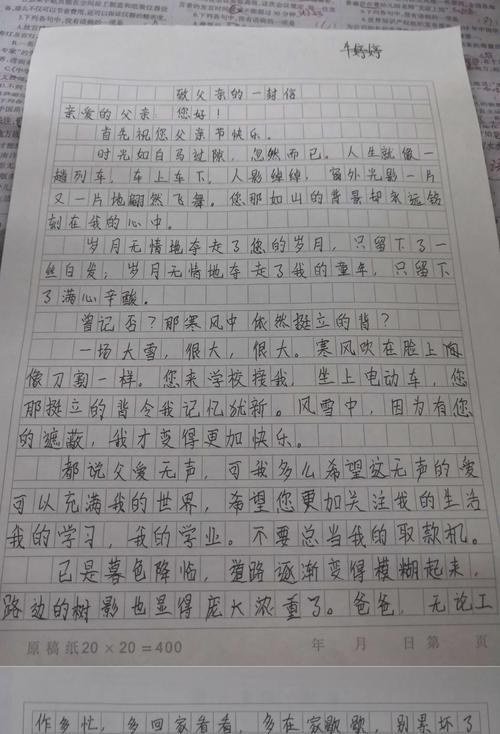 牛婷婷
敬父亲的一封信
亲爱的父亲: 您好!
首先祝您父亲节快乐。
时光如白马过隙,忽然而已。人生就像一
趟列车,车上车下,人影绰绰,窗外光影一片
又一片地翩然飞舞。您那如山的背景却永远铭
刻在我的心中。
岁月无情地夺走了您的岁月,只留下了一
丝白发;岁月无情地夺走了我的童年,只留下
了满心辛酸。
曾记否?那寒风中依然挺立的背?
一场大雪,很大,很大。寒风吹在脸上向
像刀割一样。您来学校接我,坐上电动车,您
那挺立的背令我记忆犹新。风雪中,因为有您
的遮蔽,我才变得更加快乐。
都说父爱无声,可我多么希望这无声的爱
可以充满我的世界,希望您更加关注我的生活
我的学习,我的学业。不要总当我的取款机。
已是暮色降临,道路逐渐变得模糊起来,
路边的树影也显得庞大浓重了。爸爸,无论工
原稿纸20×20=400 年 月 日第 页
作多忙,多回家看看,多在家歇歇,别累坏了